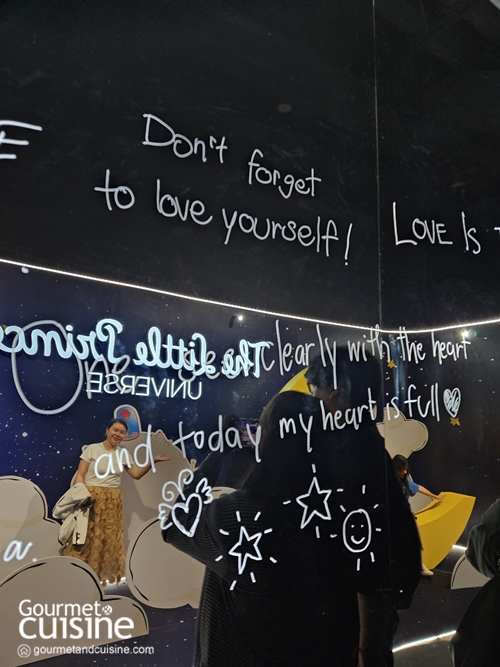 E
Don't forget
to love yourself!
LOVE IS
The Little Prince
UNIVERSE
clearly with the heart
and today my heart is full
a.
Gourmet
CUISINE
gourmetandcuisine.com